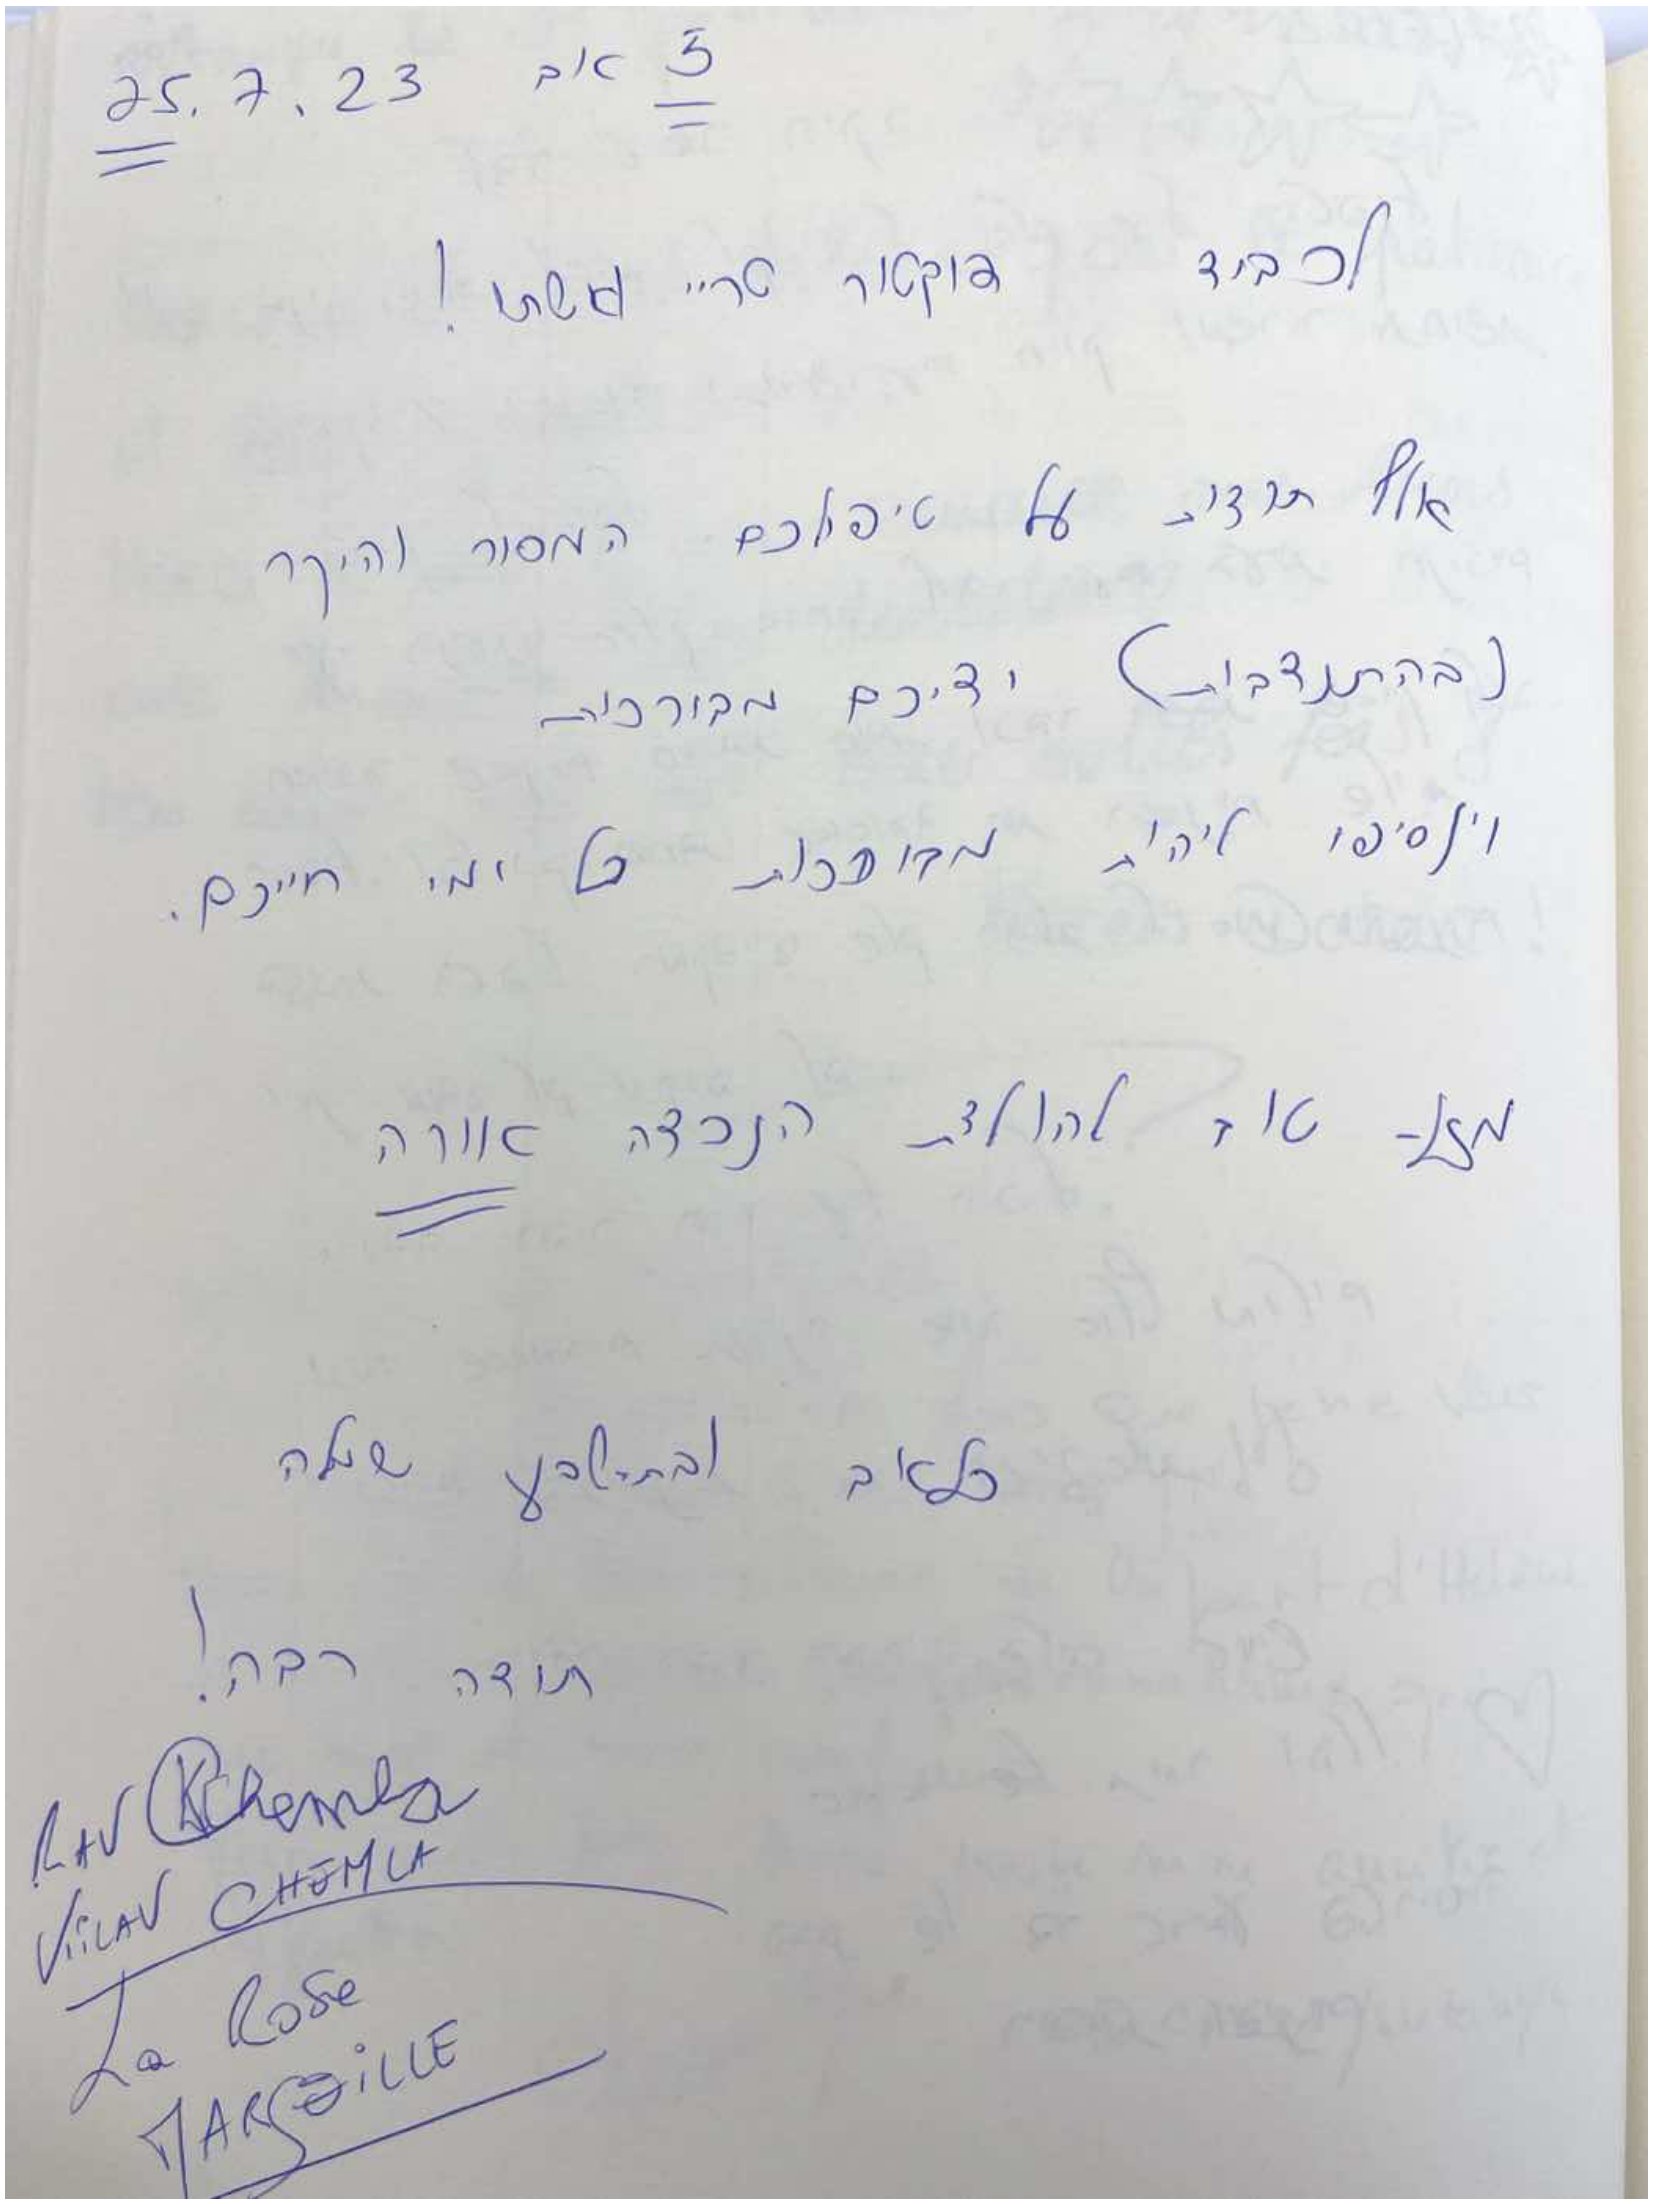 5 אב 25.7.23
לכבוד דוקטור טריי ואשתו!
אלף תודות על טיפולכם המסור והיקר
(בהתנדבות) ידיכם מבורכות
וינסיפו ליהות מבורכות כל ימי חייכם.
מזל- טוב להולדת הנכדה אוורה
כלאב ובתשבע שמלה
תודה רבה!
RAV Chemla
CHEMLA
La Rose
MARSEILLE